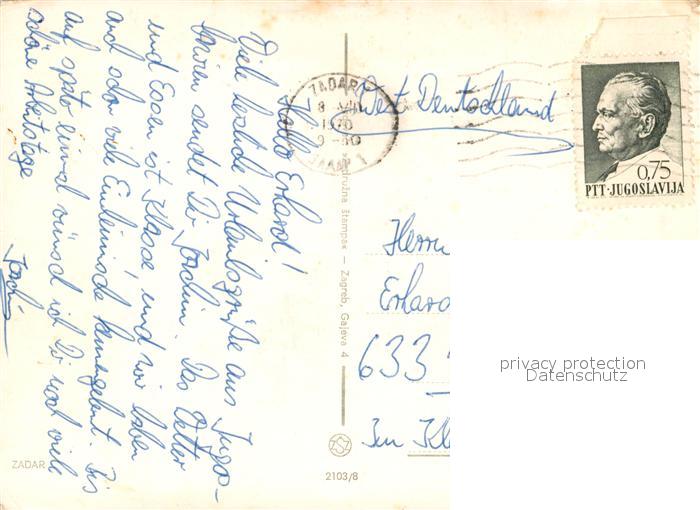 Hallo Erhard!
Viele herzliche Urlaubsgrüße aus Jugo-
slawien sendet Dir Joachim. Das Wetter
und Essen ist Klasse und wir haben
auch schon viele Einheimische kennengelernt. Bis
auf später einmal wünsch ich Dir noch viele
schöne Arbeitstage
ZADAR
8. VIII
1970
ZADAR 1
West Deutschland
0,75
PTT·JUGOSLAVIJA
Herrn
Erhard
633
Im
družna štampa« — Zagreb, Gajeva 4
2103/8
ZADAR
privacy protection
Datenschutz